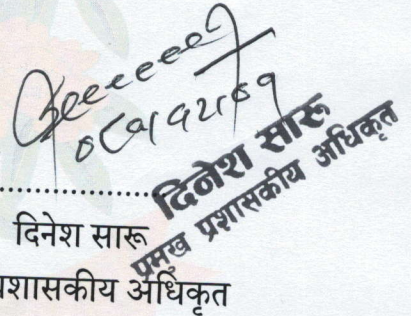 दिनेश सारू
प्रमुख प्रशासकीय अधिकृत
....................
दिनेश सारू
प्रशासकीय अधिकृत